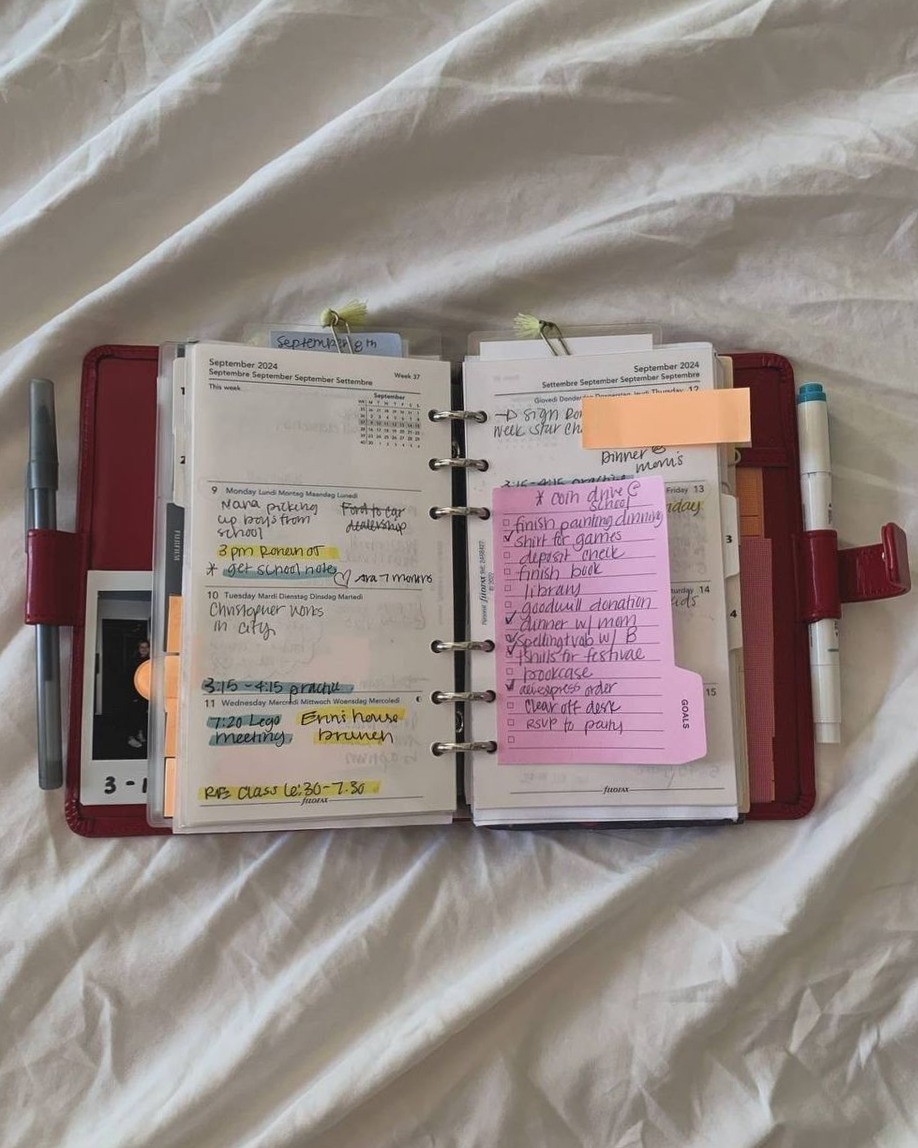 September 8th
September 2024
Septembre September September Settembre
Week 37
This week
September
9 Monday Lundi Montag Maandag Lunedì
Nana picking
up boys from
school
Ford to car
dealership
3pm Ronan OT
* get school notes
♡ Ara 7 months
10 Tuesday Mardi Dienstag Dinsdag Martedì
Christopher works
in city
3:15 - 4:15 practice
11 Wednesday Mercredi Mittwoch Woensdag Mercoledì
7:20 Lego
meeting
Erin's house
brunch
Class 6:30-7:30
filofax
FUJIFILM
3 -
September 2024
Settembre September September Septembre
Giovedì Donderdag Donnerstag Jeudi Thursday 12
Sign
Week Star
Dinner @
mom's
3:15-4:15 practice
* coin drive @
school
finish painting dining
shirt for games
deposit check
finish book
library
goodwill donation
dinner w/ mom
Spelling + vob w/ B
shirts for festival
bookcase
aliexpress order
clear off desk
RSVP to party
GOALS
Friday 13
14
kids
15
3
4
filofax